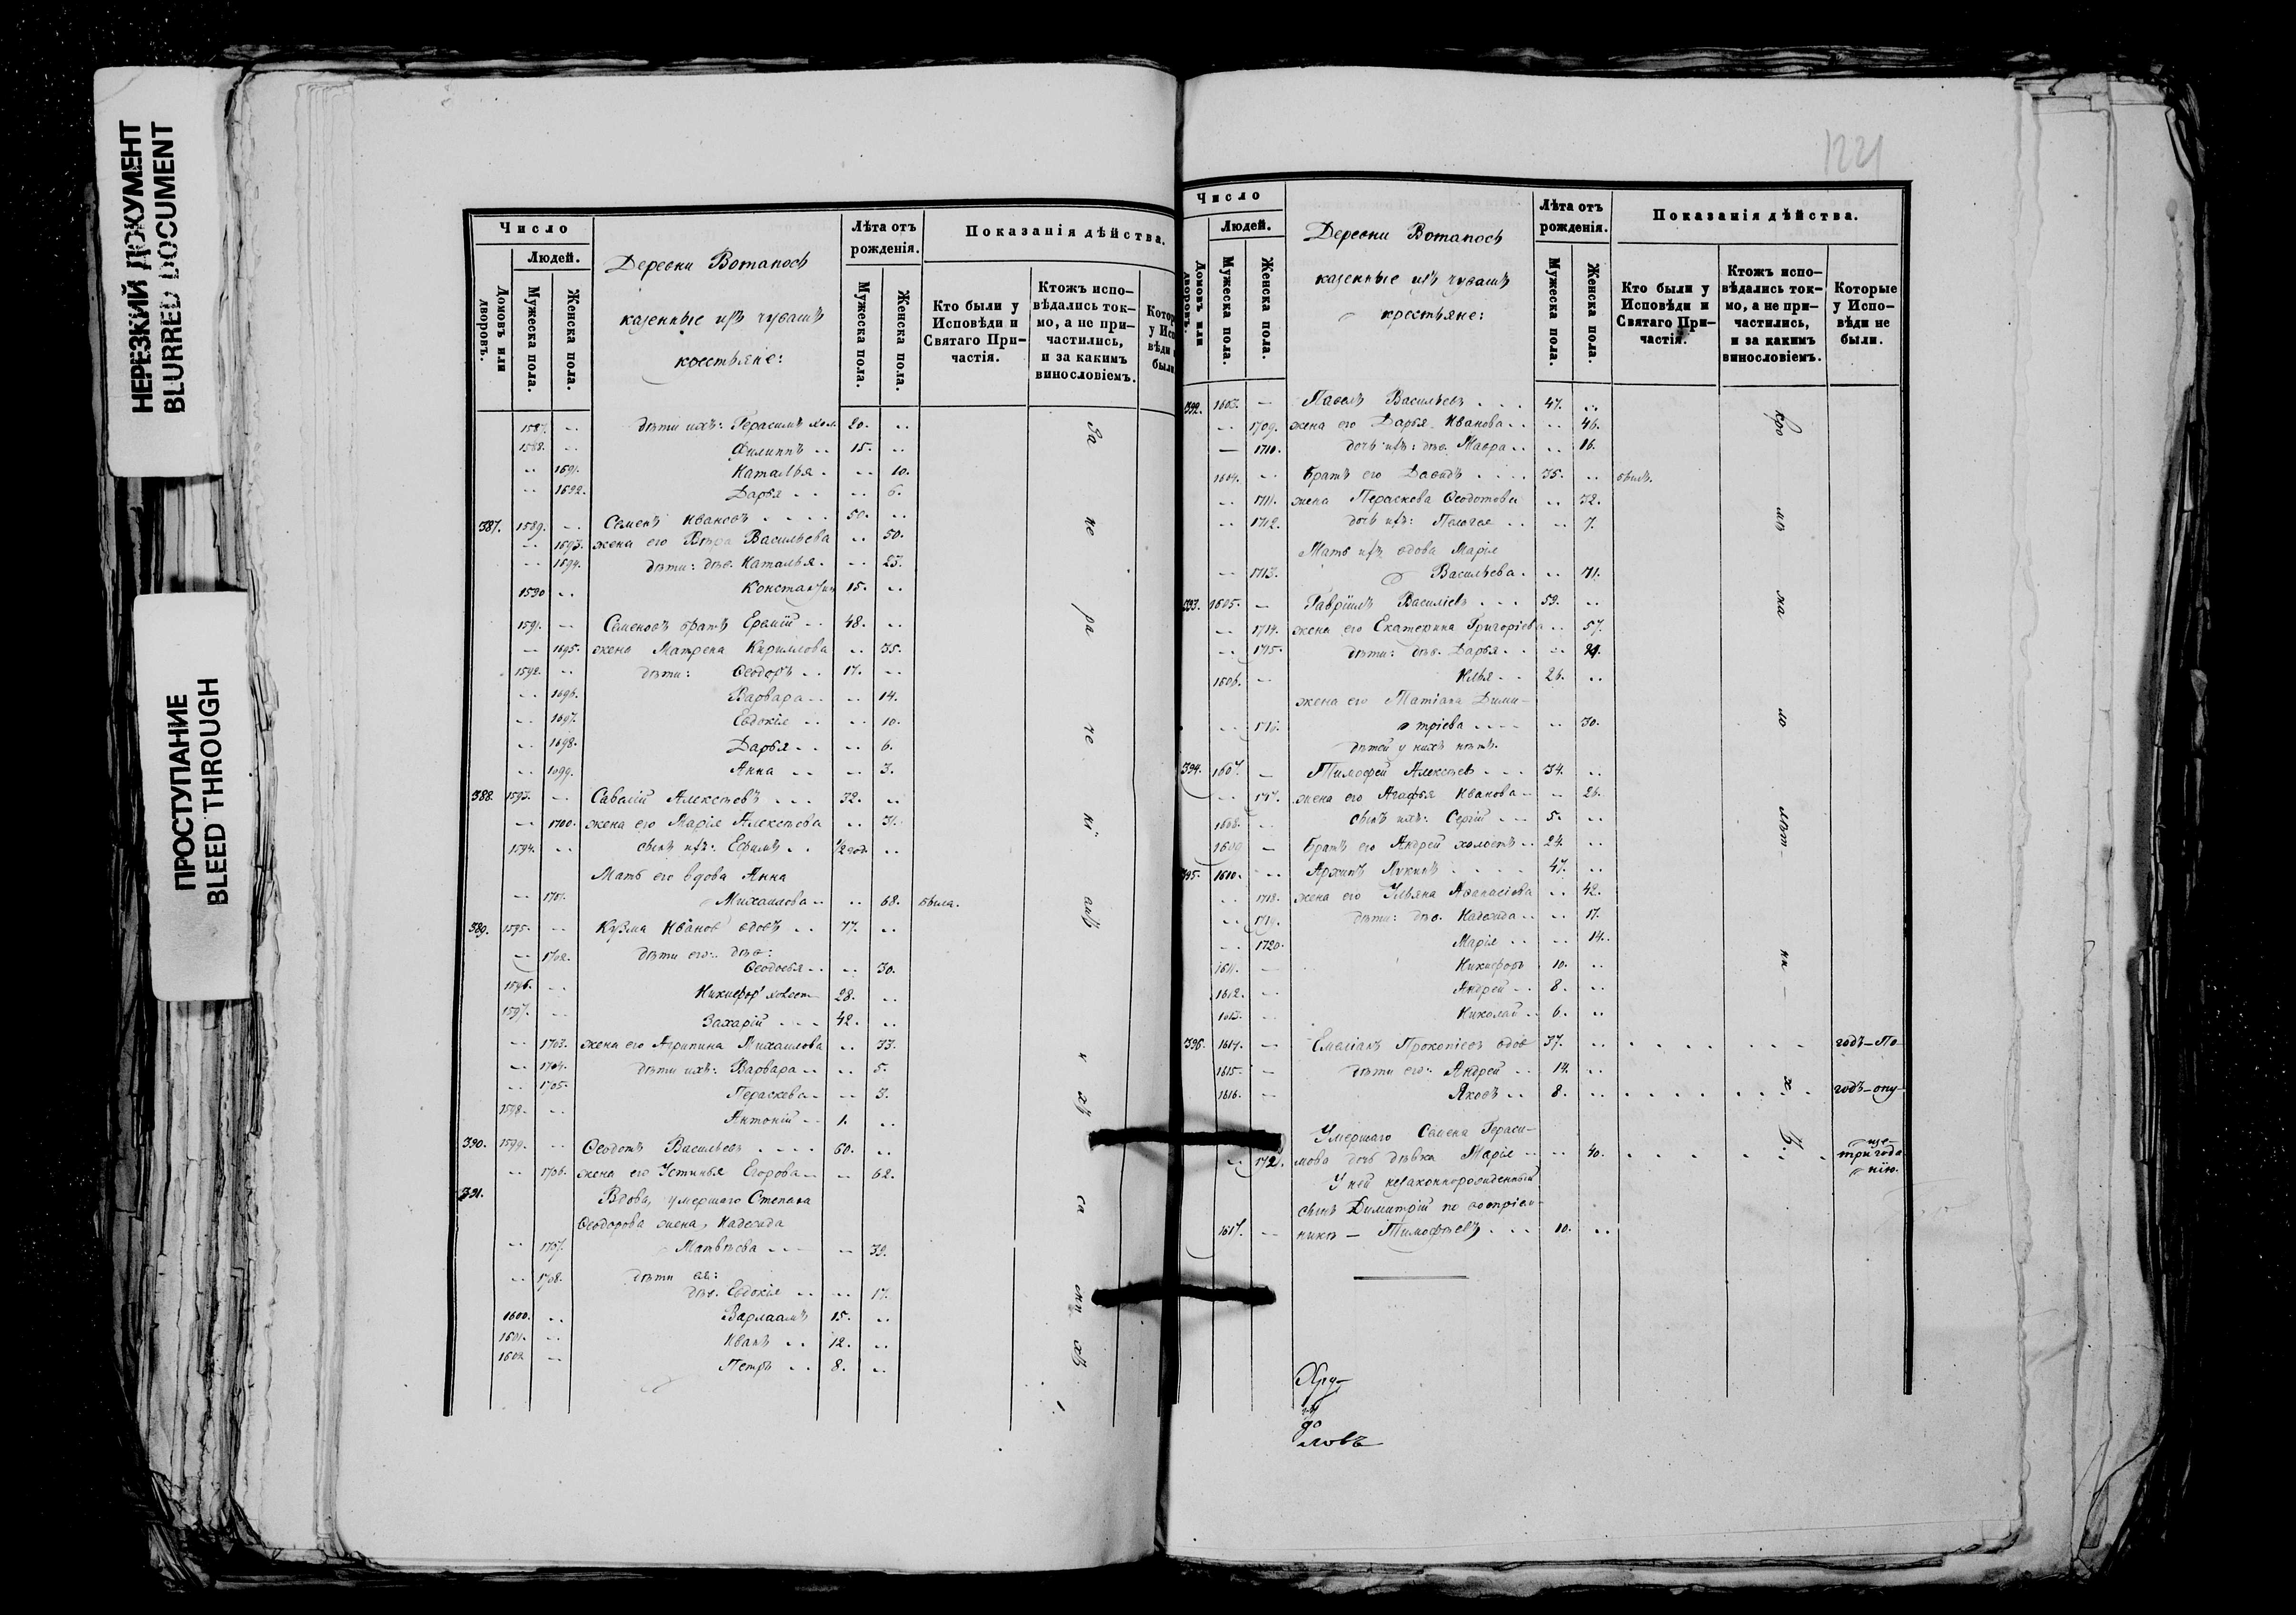 НЕРЕЗКИЙ ДОКУМЕНТ
BLURRED DOCUMENT
ПРОСТУПАНИЕ
BLEED THROUGH
Число
Людей.
Домовъ или дворовъ.
Мужеска пола.
Женска пола.
Деревни Вотаносъ
казенные изъ чувашъ
крестьяне:
Лѣта отъ рожденія.
Мужеска пола.
Женска пола.
Показанія дѣйства.
Кто были у Исповѣди и Святаго Причастія.
Ктожъ исповѣдались токмо, а не причастились, и за какимъ винословіемъ.
1587. -- дѣти ихъ: Герасимъ хол. 20. --
1588. -- Филиппъ -- 15. --
-- 1691. Наталья -- -- 10.
-- 1692. Дарья -- -- 6.
387. 1589. -- Семенъ Ивановъ 50. --
-- 1693. жена его Вѣра Васильева -- 50.
-- 1694. дѣти: дѣв. Наталья -- -- 23.
1590 -- Константин 15. --
1591. -- Семеновъ братъ Ермій -- 48. --
-- 1695. жена Матрена Кириллова -- 35.
1592. -- дѣти: Ѳеодоръ -- 17. --
-- 1696. Варвара -- -- 14.
-- 1697. Евдокія -- -- 10.
-- 1698. Дарья -- -- 6.
-- 1699. Анна -- -- 3.
388. 1593. -- Савелій Алексѣевъ 32. --
-- 1700. жена его Марія Алексѣева -- 31.
1594. -- сынъ ихъ: Ефимъ -- 1/2 год. --
Мать его вдова Анна
-- 1701. Михаилова -- -- 68. была.
389. 1595. -- Кузма Иванов вдовъ -- 77. --
-- 1702. дѣти его: дѣв:
Ѳеодосья -- -- 30.
1596. -- Никифоръ холост 28. --
1597. -- Захарій 42. --
-- 1703. жена его Агрипина Михаилова -- 33.
-- 1704. дѣти ихъ: Варвара -- -- 5.
-- 1705. Параскева -- -- 3.
1598. -- Антоній -- 1. --
390. 1599. -- Ѳеодотъ Васильевъ 60. --
-- 1706. жена его Устинья Егорова -- -- 62.
391. Вдова, умершаго Степана
Ѳеодорова жена, Надежда
-- 1707. Матвѣева -- 39.
-- 1708. дѣти ея:
дѣв. Евдокія -- -- 17.
1600. -- Варлаамъ 15. --
1601. -- Иванъ -- 12. --
1602 -- Петръ -- 8. --
1221
Число
Людей.
Домовъ или дворовъ.
Мужеска пола.
Женска пола.
Деревни Вотаносъ
казенные изъ чувашъ
крестьяне:
Лѣта отъ рожденія.
Мужеска пола.
Женска пола.
Показанія дѣйства.
Кто были у Исповѣди и Святаго Причастія.
Ктожъ исповѣдались токмо, а не причастились, и за какимъ винословіемъ.
Которые у Исповѣди не были.
392. 1603. -- Павелъ Васильевъ 47. --
-- 1709. жена его Дарья Иванова -- -- 46.
-- 1710. дочь ихъ: дѣв. Мавра -- -- 16.
1604. -- Братъ его Давидъ 35. -- былъ.
-- 1711. жена Параскева Ѳеодотова -- 32.
-- 1712. дочь ихъ: Пелагея -- -- 7.
Мать ихъ вдова Марія
-- 1713. Васильева -- 71.
393. 1605. -- Гавріилъ Василіевъ 59. --
-- 1714. жена его Екатерина Григоріева -- 57.
-- 1715. дѣти: дѣв. Дарья --
1606. -- Илья -- 26. --
жена его Татіана Дими-
-- 1716. тріева -- 30.
дѣтей у нихъ нѣтъ.
394. 1607. -- Тимофей Алексѣев 34. --
-- 1717. жена его Агафья Иванова -- -- 26.
1608. -- сынъ ихъ: Сергій -- 5. --
1609 -- Братъ его Андрей холостъ -- 24. --
395. 1610. -- Архипъ Лукинъ 47. --
-- 1718. жена его Ульяна Аѳанасіева -- 42.
-- 1719. дѣти: дѣв. Надежда -- -- 17.
-- 1720. Марія -- -- 14.
1611. -- Никифоръ 10. --
1612. -- Андрей -- 8. --
1613. -- Николай -- 6. --
396. 1614. -- Емеліанъ Прокопіевъ вдов 37. -- годъ-По
1615. -- дѣти его: Андрей -- 14. --
1616. -- Яковъ -- 8. -- годъ-опу-
Умершаго Семена Гераси- ще-
-- 1721. мова дочь дѣвка Марія -- -- 40. три года
У ней незаконнорожденный нію.
сынъ Димитрій по воспріем-
1617. -- никѣ - Тимофѣевъ 10. --